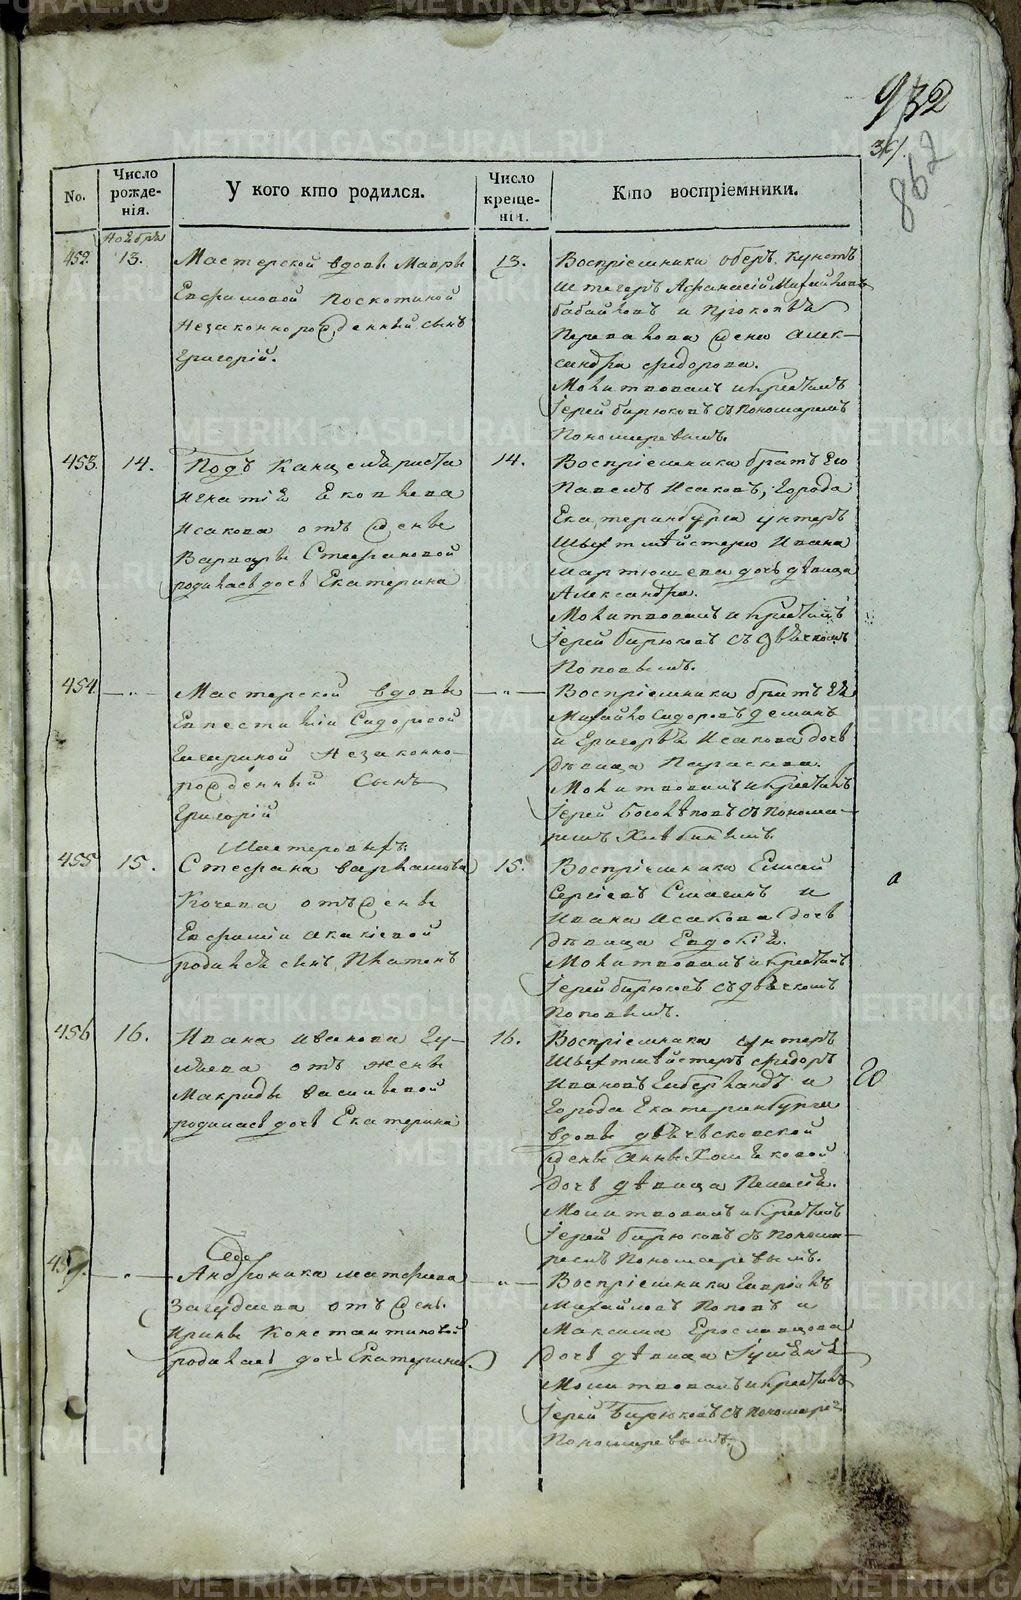 932
862
No.
Число рожде-нія.
У кого кто родился.
Число креще-нія.
Кто воспріемники.
Ноября
452. 13.
Мастерской вдовы Мавры
Ефимовой Поскотиной
незаконнорожденный сынъ
Григорій.
13.
Воспріемники оберъ
штегеръ Афанасій Михайловъ
бабайловъ и Прокопья
жена Алек-
сандра Федорова.
Молитвовалъ и крестилъ
Іерей бирюковъ съ пономаремъ
Пономаревымъ.
453. 14.
Подъ канцеляриста
Игнатія Яковлева
Исакова отъ жены
Варвары Стефановой
родилась дочь Екатерина
14.
Воспріемники братъ его
Павелъ Исаковъ, города
Екатеринбурга унтеръ
шихтмейстера Ивана
Мартюшева дочь дѣвица
Александра.
Молитвовалъ и крестилъ
Іерей бирюковъ съ дьячкомъ
Поповымъ.
454 — „ —
Мастерской вдовы
Сидоровой
незаконно-
рожденный сынъ
Григорій
— „ —
Воспріемники братъ ея
Михайло Сидоровъ
и Григорья Исакова дочь
дѣвица Параскева.
Молитвовалъ и крестилъ
Іерей боголѣповъ съ понома-
ремъ Хлѣбинымъ
455 15.
Мастеровыхъ:
Стефана Варламова
Кочева отъ жены
Евфиміи Акакіевой
родился сынъ Платонъ
15.
Воспріемники
Сергіевъ и
Ивана Исакова дочь
дѣвица Евдокія.
Молитвовалъ и крестилъ
Іерей бирюковъ съ дьячкомъ
Поповымъ.
456 16.
Ивана Иванова Гу-
ляева отъ жены
Макриды Васильевой
родилась дочь Екатерина
16.
Воспріемники унтеръ
шихтмейстеръ Федоръ
Ивановъ и
города Екатеринбурга
вдовы дьячековской
жены Анны
дочь дѣвица Пелагія.
Молитвовалъ и крестилъ
Іерей бирюковъ съ понома-
ремъ Пономаревымъ.
457. — „ —
Андроника Матфеева
отъ жены
Ирины Константиновой
родилась дочь Екатерина.
— „ —
Воспріемники Гавріилъ
Михайловъ Поповъ и
Максима Ерославцова
дочь дѣвица
Молитвовалъ и крестилъ
Іерей Бирюковъ съ пономаремъ
Пономаревымъ.
METRIKI.GASO-URAL.RU